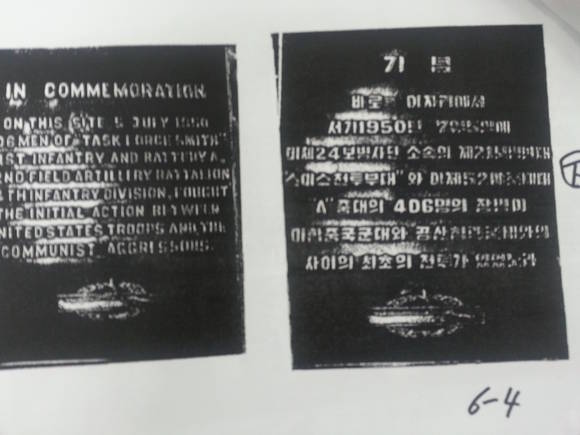 IN COMMEMORATION
ON THIS SITE 5 JULY 1950
MEN OF "TASK FORCE SMITH"
ST INFANTRY AND BATTERY A,
ND FIELD ARTILLERY BATTALION
TH INFANTRY DIVISION, FOUGHT
THE INITIAL ACTION BETWEEN
UNITED STATES TROOPS AND THE
COMMUNIST AGGRESSORS.
기
바로 이자리에서
서기1950년
미제24보병사단 소속의
"스미스전투부대"와
A"중대의 406명의 장병이
미합중국군대와
사이의 최초의 전투가
6-4